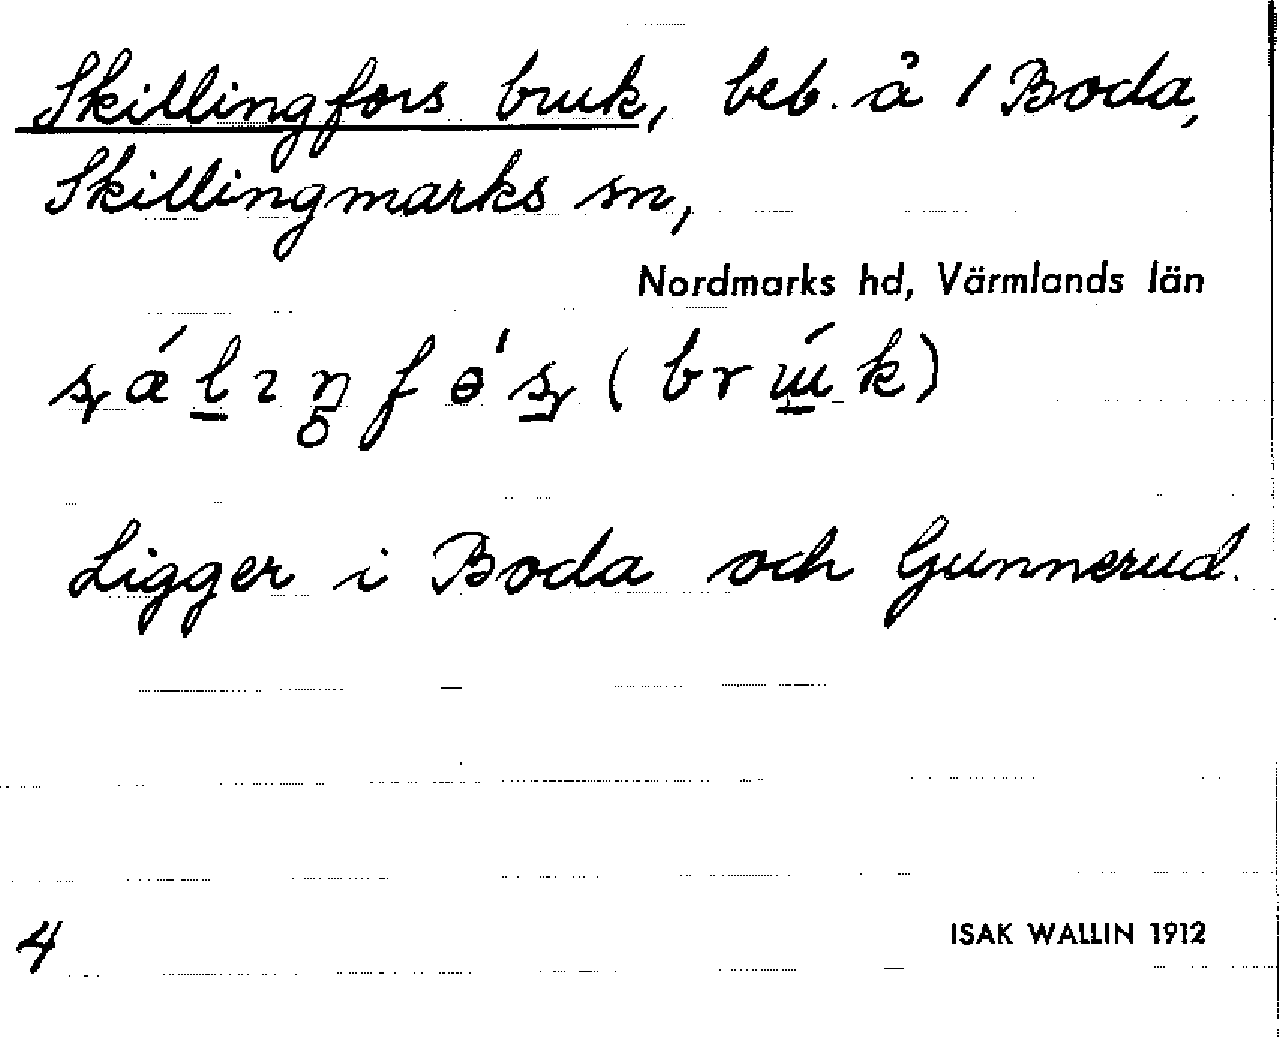 Skillingfors bruk, beb. å 1 Boda,
Skillingmarks sn,
Nordmarks hd, Värmlands län
Ligger i Boda och Gunnerud.
4
ISAK WALLIN 1912